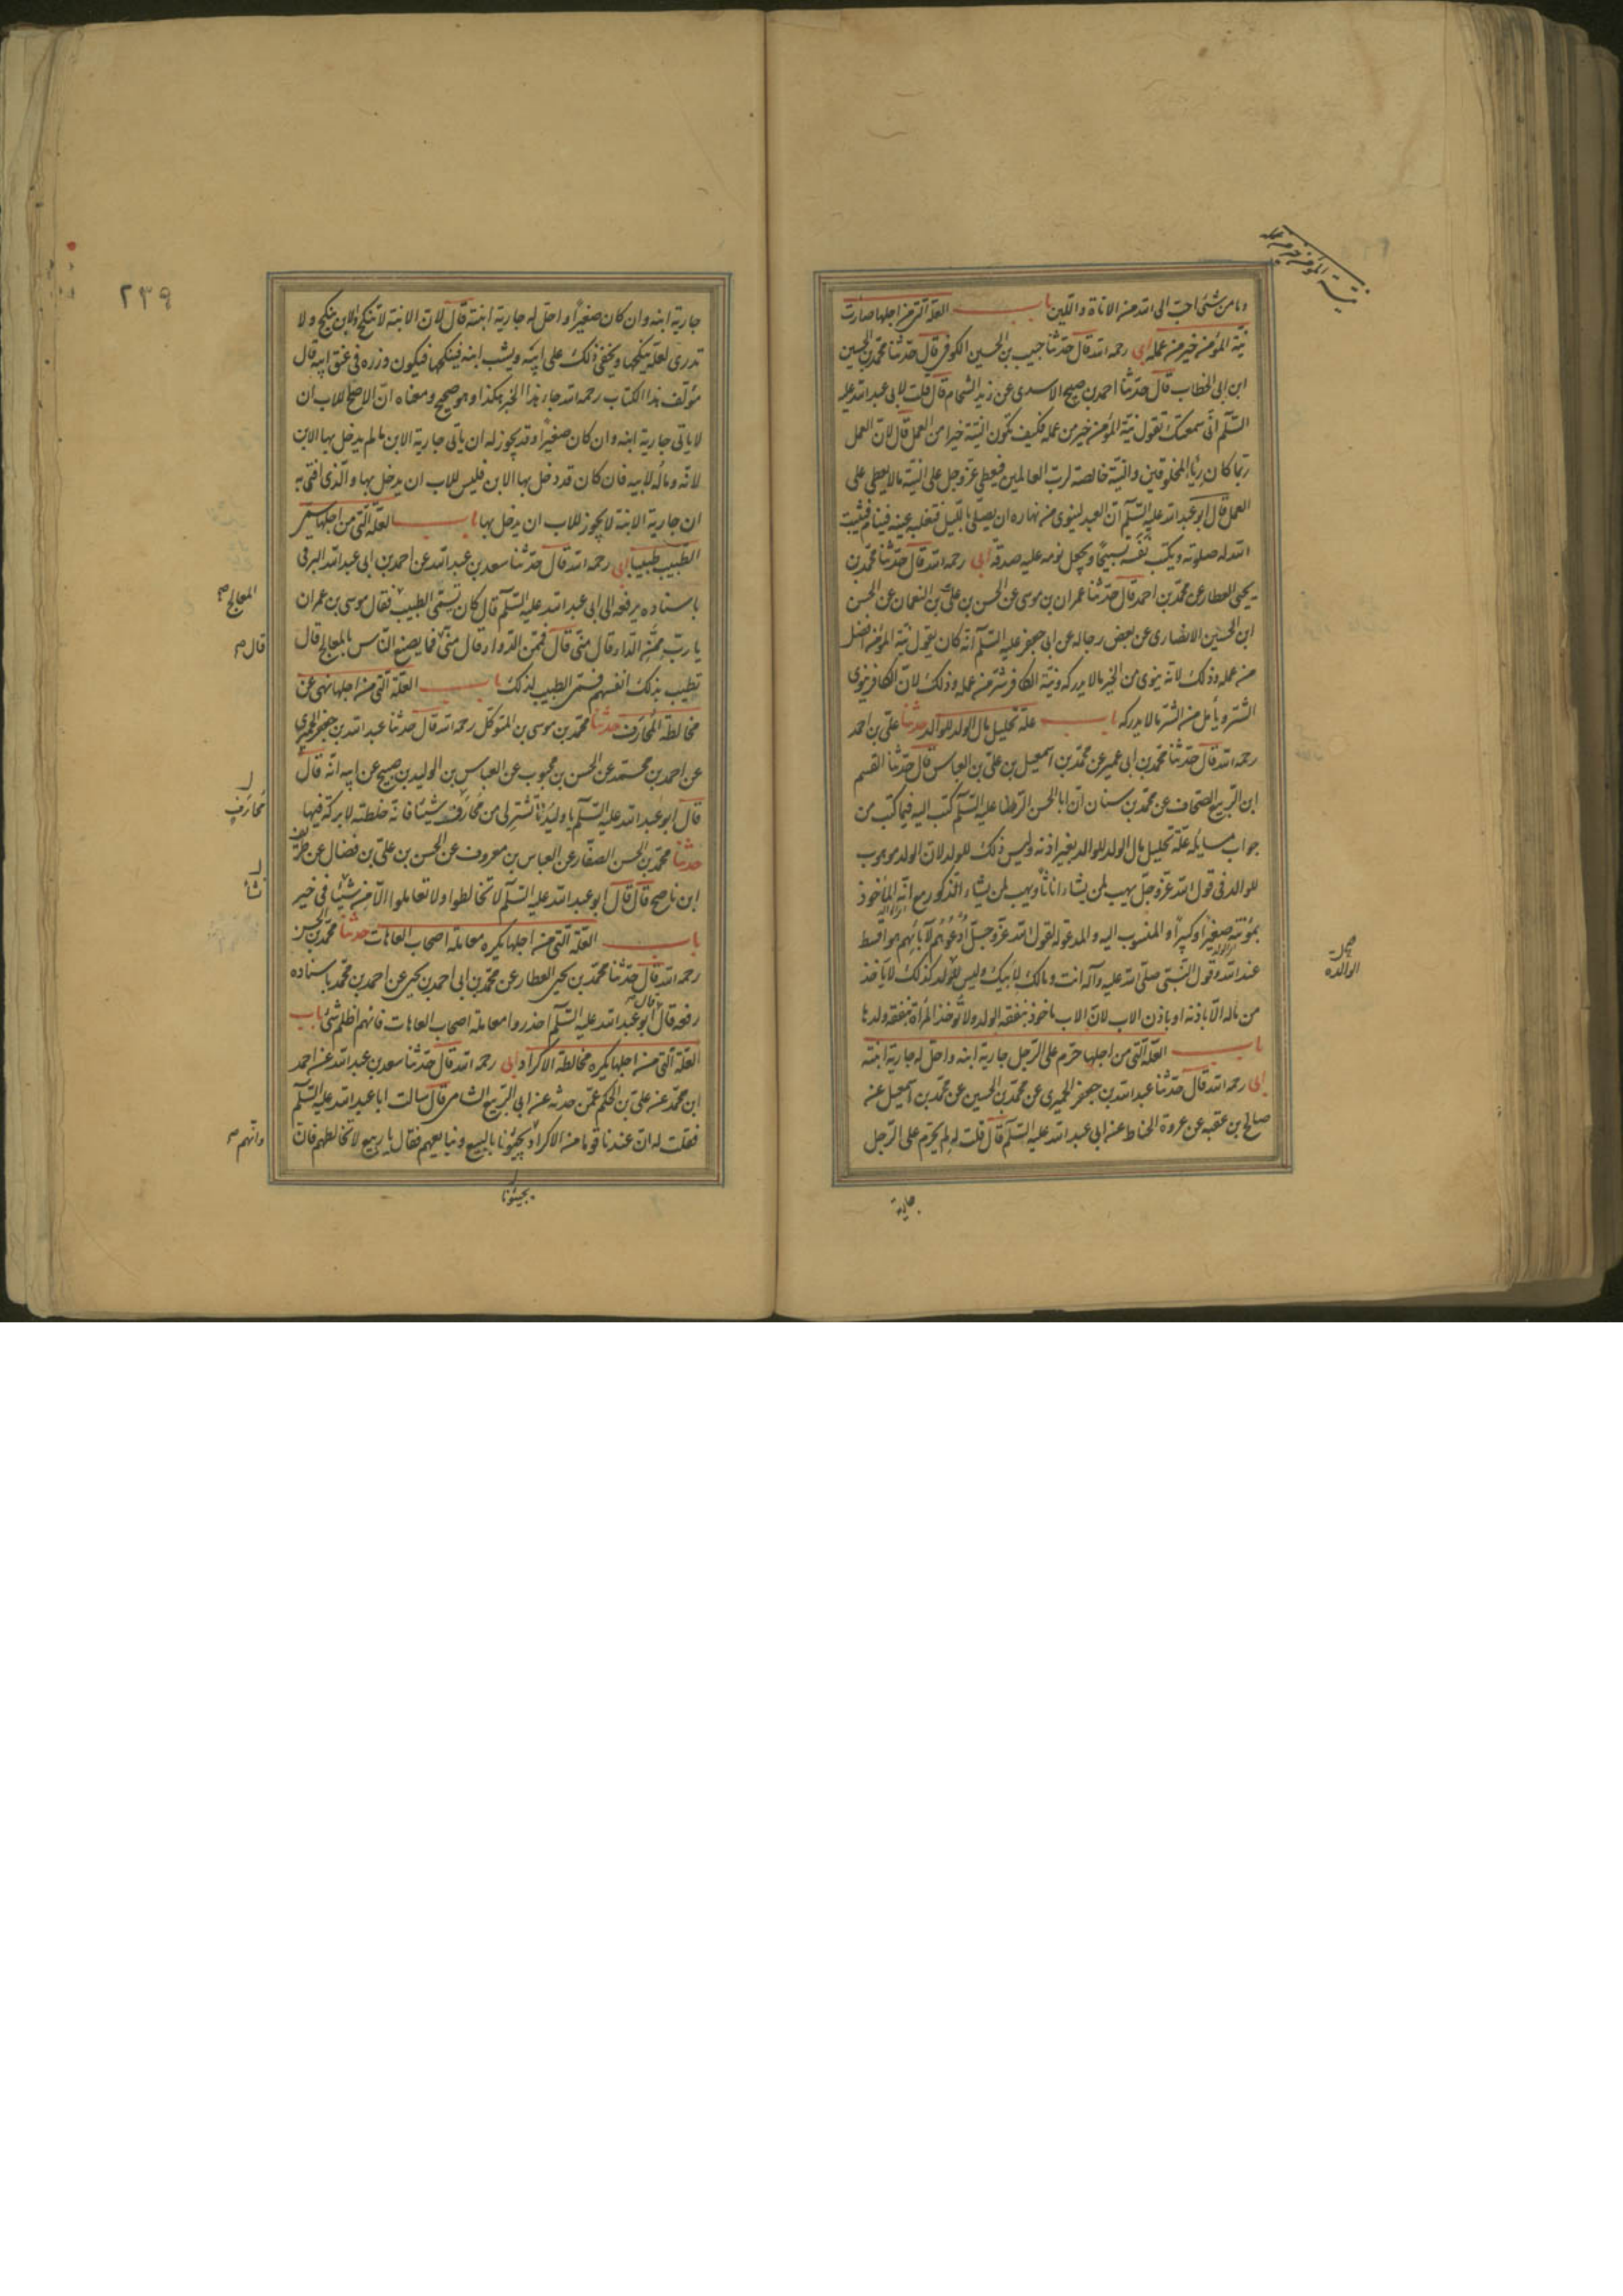 وما من شئ احب الى الله من الاناة واللين باب العلة التى من اجلها صارت
نية المؤمن خير من عمله ابى رحمه الله قال حدثنا حبيب بن الحسين الكوفى قال حدثنا محمد بن الحسين
ابن ابى الخطاب قال حدثنا احمد بن صبيح الاسدى عن زيد الشحام قال قلت لابى عبد الله عليه
السلم انى سمعتك تقول نية المؤمن خير من عمله فكيف تكون النية خيرا من العمل قال لان العمل
ربما كان رياء المخلوقين والنية خالصة لرب العالمين فيعطى عز وجل على النية ما لا يعطى على
العمل قال ابو عبد الله عليه السلم ان العبد لينوى من نهاره ان يصلى بالليل فتغلبه عينه فينام فيثبت
الله له صلوته ويكتب نفسه تسبيحا ويجعل نومه عليه صدقة ابى رحمه الله قال حدثنا محمد بن
يحيى العطار عن محمد بن احمد قال حدثنا عمران بن موسى عن الحسن بن على بن النعمان عن الحسن
ابن الحسين الانصارى عن بعض رجاله عن ابى جعفر عليه السلم انه كان يقول نية المؤمن افضل
من عمله وذلك لانه ينوى من الخير ما لا يدركه ونية الكافر شر من عمله وذلك لان الكافر ينوى
الشر ويأمل من الشر ما لا يدركه باب علة تحليل مال الولد للوالد حدثنا على بن احمد
رحمه الله قال حدثنا محمد بن ابى عمير عن محمد بن اسمعيل بن على بن العباس قال حدثنا القسم
ابن الربيع الصحاف عن محمد بن سنان ان ابا الحسن الرضا عليه السلم كتب اليه فيما كتب من
جواب مسايله علة تحليل مال الولد للوالد بغير اذنه وليس ذلك للولد لان الولد موهوب
للوالد فى قول الله عز وجل يهب لمن يشاء اناثا ويهب لمن يشاء الذكور مع انه المأخوذ
بمؤنته صغيرا وكبيرا والمنسوب اليه والمدعو له لقول الله عز وجل ادعوهم لآبائهم هو اقسط
عند الله وقول النبى صلى الله عليه وآله انت ومالك لابيك وليس للوالدة كذلك لا تاخذ
من ماله الا باذنه او باذن الاب لان الاب ماخوذ بنفقة الولد ولا تؤخذ المرأة بنفقة ولدها
باب العلة التى من اجلها حرم على الرجل جارية ابنه واحل له جارية ابنته
ابى رحمه الله قال حدثنا عبد الله بن جعفر الحميرى عن محمد بن الحسين عن محمد بن اسمعيل عن
صالح بن عقبه عن عروة الحناط عن ابى عبد الله عليه السلم قال قلت له لم يحرم على الرجل
جارية
نية المؤمن خير من عمله
الوالدة
٢٣٩
جارية ابنه وان كان صغيرا واحل له جارية ابنته قال لان الابنة لا تنكح والابن ينكح ولا
تدرى لعله ينكحها ويخفى ذلك على ابيه ويشب ابنه فينكحها فيكون وزره فى عنق ابيه قال
مؤلف هذا الكتاب رحمه الله جاء هذا الخبر هكذا وهو صحيح ومعناه ان الاصلح للاب ان
لا ياتى جارية ابنه وان كان صغيرا وقد يجوز له ان ياتى جارية الابن ما لم يدخل بها الابن
لانه وماله لابيه فان كان قد دخل بها الابن فليس للاب ان يدخل بها والذى افتى به
ان جارية الابنة لا يجوز للاب ان يدخل بها باب العلة التى من اجلها سمى
الطبيب طبيبا ابى رحمه الله قال حدثنا سعد بن عبد الله عن احمد بن ابى عبد الله البرقى
باسناده يرفعه الى ابى عبد الله عليه السلم قال كان يسمى الطبيب فقال موسى بن عمران
يا رب ممن الداء قال منى قال فممن الدواء قال منى فما يصنع الناس بالمعالج قال
تطيب بذلك انفسهم فسمى الطبيب لذلك باب العلة التى من اجلها نهى عن
مخالطة المحارف حدثنا محمد بن موسى بن المتوكل رحمه الله قال حدثنا عبد الله بن جعفر الحميرى
عن احمد بن محمد عن الحسن بن محبوب عن العباس بن الوليد بن صبيح عن ابيه انه قال
قال ابو عبد الله عليه السلم يا وليد لا تشتر لى من محارف شيئا فانه خلطته لا بركة فيها
حدثنا محمد بن الحسن الصفار عن العباس بن معروف عن الحسن بن على بن فضال عن ظريف
ابن ناصح قال قال ابو عبد الله عليه السلم لا تخالطوا ولا تعاملوا الا من نشأ فى خير
باب العلة التى من اجلها يكره معاملة اصحاب العاهات حدثنا محمد بن الحسن
رحمه الله قال حدثنا محمد بن يحيى العطار عن محمد بن ابى احمد بن يحيى عن احمد بن محمد باسناده
رفعه قال قال ابو عبد الله عليه السلم احذروا معاملة اصحاب العاهات فانهم اظلم شئ باب
العلة التى من اجلها يكره مخالطة الاكراد ابى رحمه الله قال حدثنا سعد بن عبد الله عن احمد
ابن محمد عن على بن الحكم عمن حدثه عن ابى الربيع الشامى قال سالت ابا عبد الله عليه السلم
فقلت له ان عندنا قوما من الاكراد يجيئونا بالبيع ونبايعهم فقال يا ربيع لا تخالطهم فان
المعالج
قال
محارف
نشأ
وانهم
يجيئونا